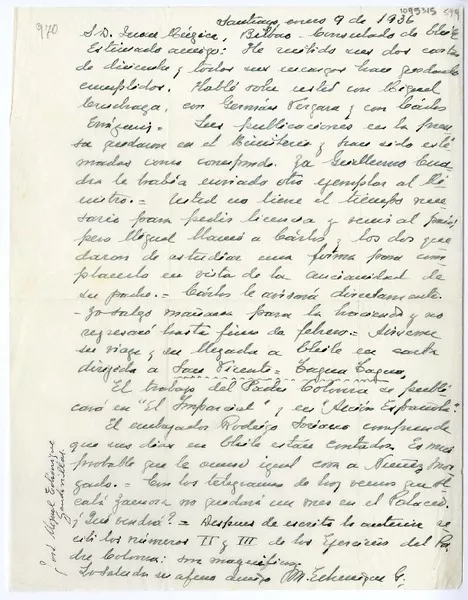 970
1099315 C44
Santiago, enero 9 de 1936
S. D. Juan Múgica, Bilbao - Consulado de Chile
Estimado amigo: He recibido sus dos cartas
de diciembre y todos sus encargos han quedado
cumplidos. Hablé sobre usted con Miguel
Cruchaga, con Germán Vergara y con Carlos
Errázuriz. = Sus publicaciones en la pren-
sa quedaron en el Ministerio y han sido esti-
madas como corresponde. Ya Guillermo
le había enviado otro ejemplar al Mi-
nistro. = Usted no tiene el tiempo nece-
sario para pedir licencia y venir al país,
pero Miguel llamó a Carlos y los dos que-
daron de estudiar una forma para com-
placerlo en vista de la ancianidad de
su padre. = Carlos le avisará directamente.
- Yo salgo mañana para la hacienda y no
regresaré hasta fines de febrero. = Avíseme
su viaje y su llegada a Chile en carta
dirigida a San Vicente = Tagua Tagua.
El trabajo del Padre Coloma se publi-
cará en "El Imparcial" y en "Acción Española".
El embajador Rodrigo Soriano comprende
que sus días en Chile están contados. Es muy
probable que le ocurra igual cosa a Núñez Mor-
gado. = Con los telegramas de hoy vemos que Al-
calá Zamora no quedará un mes en el Palacio.
¿Qué vendrá? = Después de escrito lo anterior re-
cibí los números II y III de los Ejercicios del Pa-
dre Coloma: son magníficos.
Lo saluda su afmo amigo J M. Echenique G.
José Miguel Echenique
Gandarillas.